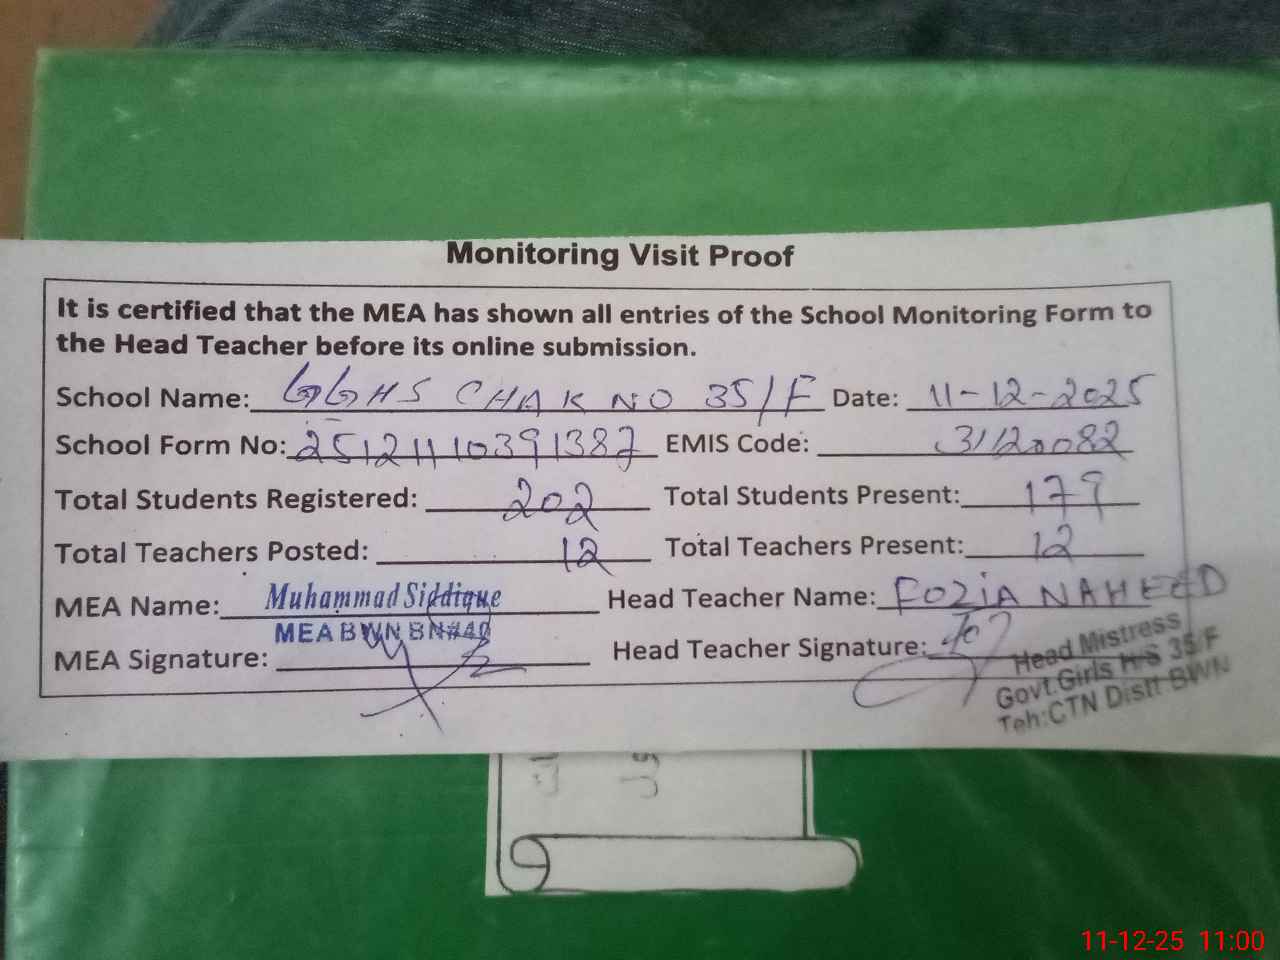 Monitoring Visit Proof
It is certified that the MEA has shown all entries of the School Monitoring Form to
the Head Teacher before its online submission.
School Name: GGHS CHAK NO 35/F Date: 11-12-2025
School Form No: 251211110391387 EMIS Code: 31120082
Total Students Registered: 202 Total Students Present: 179
Total Teachers Posted: 12 Total Teachers Present: 12
MEA Name: Muhammad Siddique Head Teacher Name: FOZIA NAHEED
MEA BWN BN#40
MEA Signature: Head Teacher Signature:
Head Mistress
Govt.Girls H/S 35/F
Teh:CTN Distt BWN
11-12-25 11:00